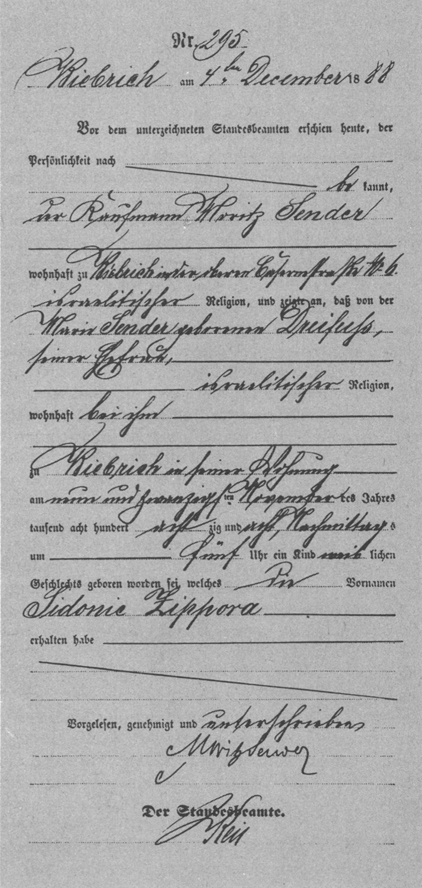 Nr. 295.
Biebrich am 4ten December 1888
Vor dem unterzeichneten Standesbeamten erschien heute, der
Persönlichkeit nach
be kannt,
der Kaufmann Moritz Sender
wohnhaft zu Biebrich in der oberen Casernstraße No 6.
israelitischer Religion, und zeigte an, daß von der
Marie Sender geborenen Dreifuss,
seiner Ehefrau,
israelitischer Religion,
wohnhaft bei ihm
zu Biebrich in seiner Wohnung
am neun und zwanzigsten November des Jahres
tausend acht hundert acht zig und acht, Nachmittags
um fünf Uhr ein Kind weib lichen
Geschlechts geboren worden sei, welches die Vornamen
Sidonie Zippora
erhalten habe
Vorgelesen, genehmigt und unterschrieben
Moritz Sender
Der Standesbeamte.